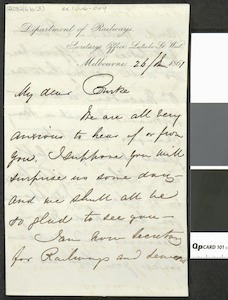 Department of Railways
Secretary's Office
Melbourne 1861
My dear Burke
We are all very
anxious to hear of or from
you. I suppose you will
surprise us some day
and we shall all be
so glad to see you —
I am now Secretary
for Railways and
QPCARD 101